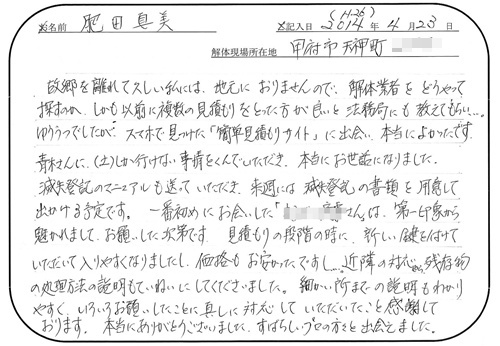 ※名前 肥田真美 ※記入日 (H26) 2014年4月23日
解体現場所在地 甲府市天神町
故郷を離れて久しい私には、地元におりませんので、解体業者をどうやって
探すのか、しかも以前に複数の見積もりをとった方が良いと法務局にも教えてもらい…。
ゆううつでしたが、スマホで見つけた「簡単見積もりサイト」に出会い本当によかったです。
青木さんに、(土)しか行けない事情をくんでいただき、本当にお世話になりました。
滅失登記のマニュアルも送っていただき、来週には滅失登記の書類を用意して
出かける予定です。一番初めにお会いした「 さんは、第一印象から
魅かれまして、お願いした次第です。見積もりの段階の時に、新しい鍵を付けて
いただいて入りやすくなりましたし、価格もお安かったですし…近隣の対応や、残存物
の処理方法の説明もていねいにしてくださいました。細かい所までの説明もわかり
やすく、いろいろお願いしたことに真しに対応していただいたこと感謝して
おります。本当にありがとうございました。すばらしいプロの方々と出会えました。